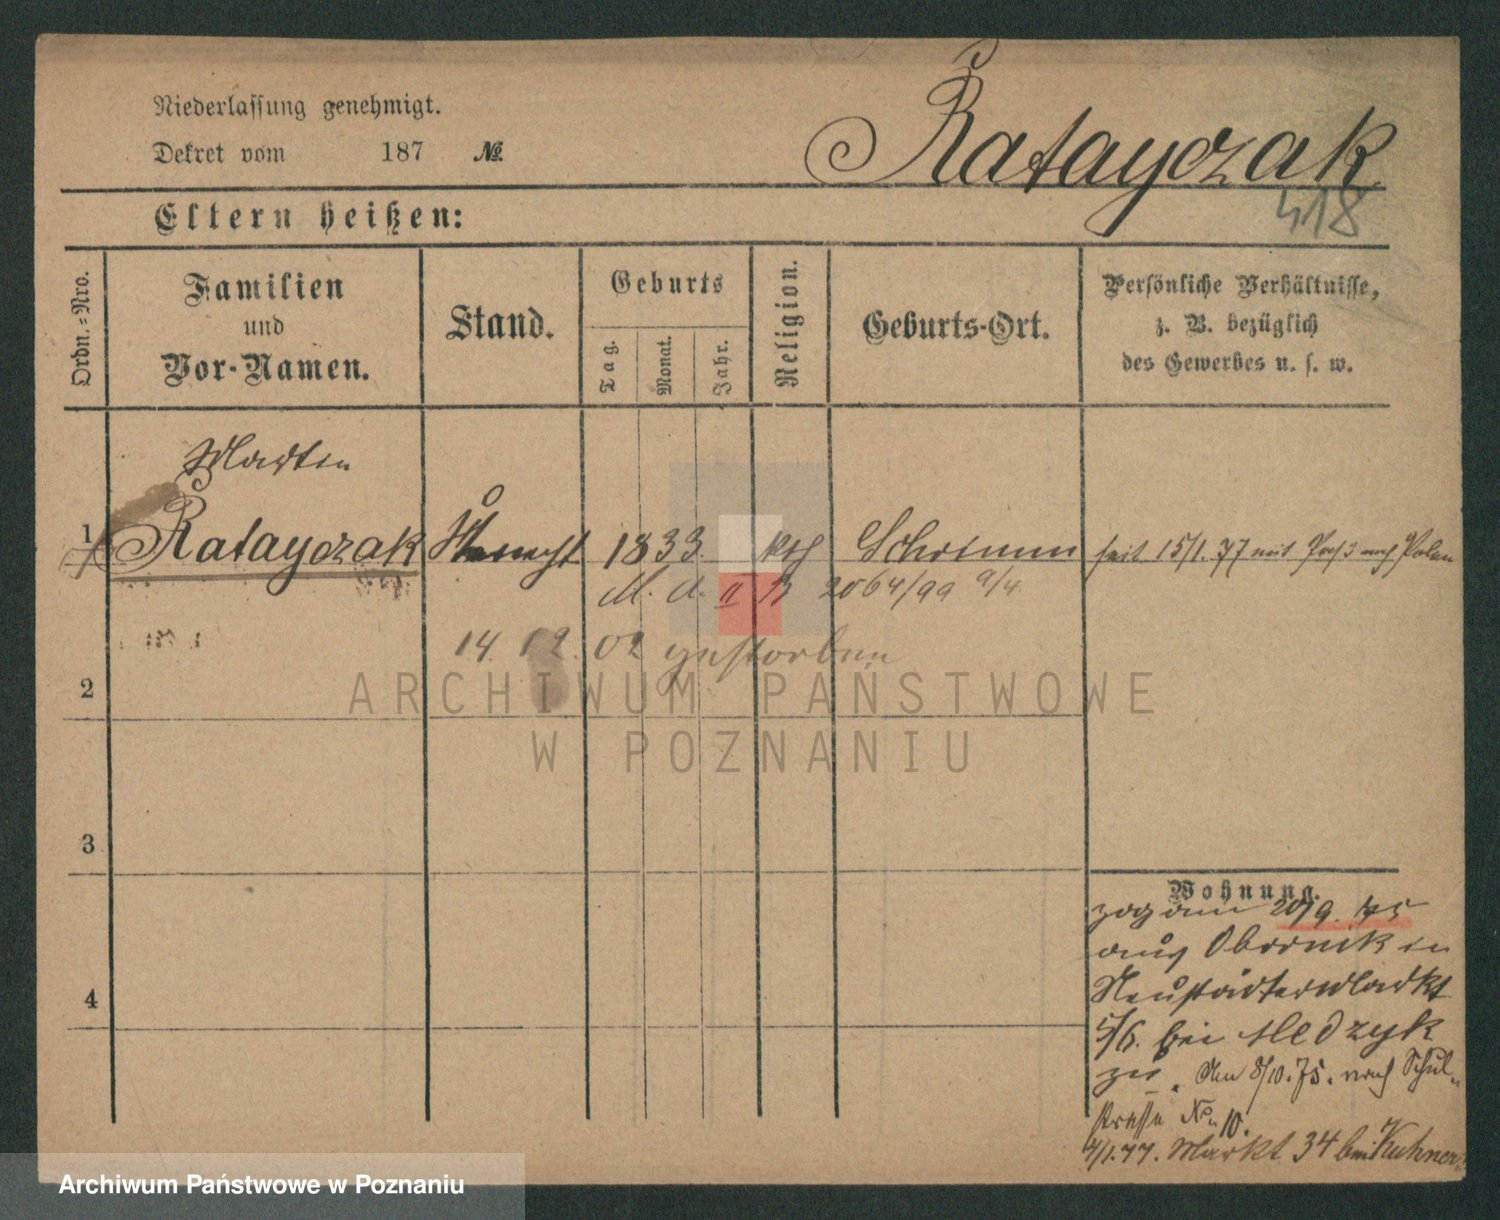 Niederlassung genehmigt.
Dekret vom 187 №
Ratayczak
418
Eltern heißen:
Ordn.-Nro.
Familien
und
Vor-Namen.
Stand.
Geburts
Tag.
Monat.
Jahr.
Religion.
Geburts-Ort.
Persönliche Verhältnisse,
z. B. bezüglich
des Gewerbes u. s. w.
Martin
1 Ratayczak 1833. kth Schrimm seit 15/1. 77 mit Paß nach Polen
M. d. II B 2064/99 9/4
14. 12. 02 gestorben
2
3
4
Wohnung.
zog am 20/9. 75
aus Obornik in
Neustädter Markt
5/6. bei Medzyk
zu. Am 8/10. 75. nach Schul-
strasse No. 10.
4/1. 77. Markt 34 bei Kuhner
ARCHIWUM PAŃSTWOWE
W POZNANIU
Archiwum Państwowe w Poznaniu